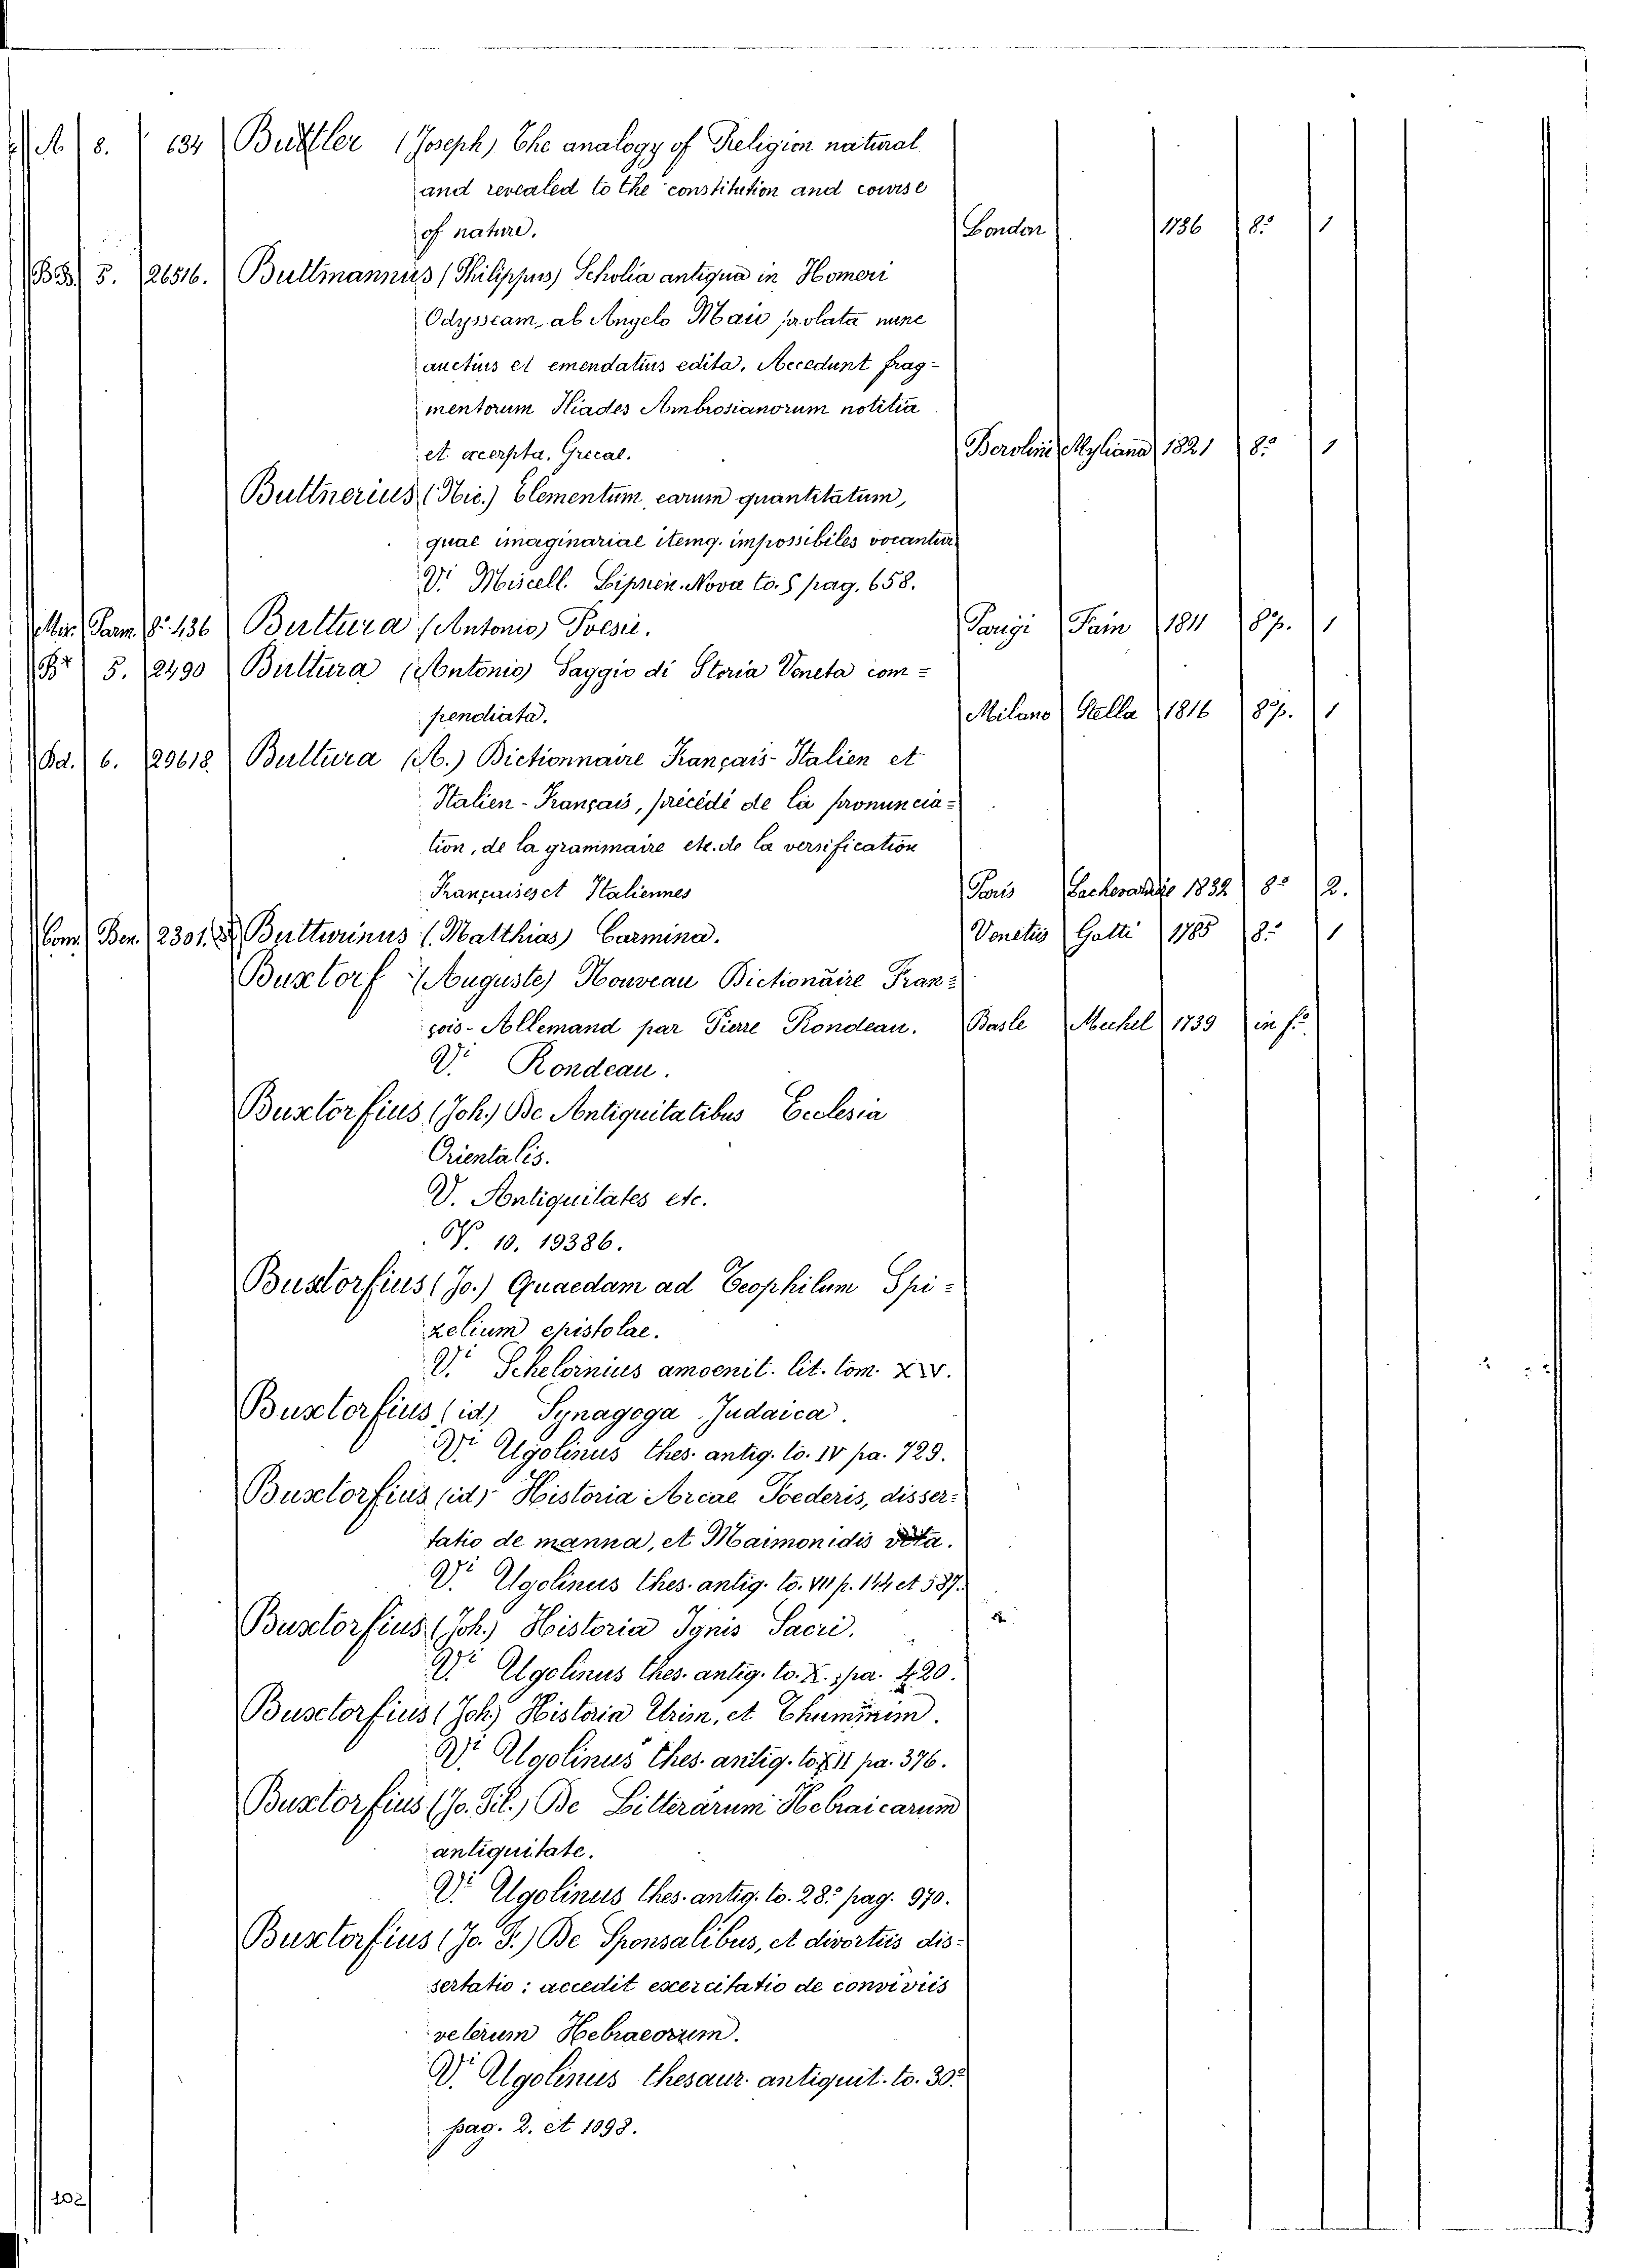 A 8. 634 Buttler (Joseph) The analogy of Religion natural
and revealed to the constitution and course
of nature. London 1736 8.° 1
BB. 5. 26516. Buttmannus (Philippus) Scholia antiqua in Homeri
Odysseam, ab Angelo Maii prolata nunc
auctius et emendatius edita, Accedunt frag=
mentorum Iliades Ambrosianorum notitia
et excerpta. Grecae. Berolini Myliana 1821 8.° 1
Buttnerius (Nic.) Elementum earum quantitatum,
quae imaginariae itemq. impossibiles vocantur
V.i Miscell. Lipsien. Nova to. 5 pag. 658.
Mis. Parm. 8.° 436 Buttura (Antonio) Poesie. Parigi Fain 1811 8.°p. 1
Br 5. 2490 Buttura (Antonio) Saggio di Storia Veneta com=
pendiata. Milano Stella 1816 8.°p. 1
Bd. 6. 29618. Buttura (A.) Dictionnaire Français-Italien et
Italien-Français, précédé de la pronuncia=
tion, de la grammaire etc. de la versification
Françaises et Italiennes Paris 1832 8.° 2.
Com. Ben. 2301. Butturinus (Matthias) Carmina. Venetiis Gatti 1785 8.° 1
Buxtorf (Auguste) Nouveau Dictionaire Fran=
çois-Allemand par Pierre Rondeau. Basle Mechel 1739 in f.°
V.i Rondeau.
Buxtorfius (Joh.) De Antiquitatibus Ecclesia
Orientalis.
V. Antiquitates etc.
V. 10. 19386.
Buxtorfius (Jo.) Quaedam ad Teophilum Spi=
zelium epistolae.
V.i Schelornius amoenit. lit. tom. XIV.
Buxtorfius (id) Synagoga Judaica.
V.i Ugolinus thes. antiq. to. IV pa. 729.
Buxtorfius (id) Historia Arcae Foederis, disser=
tatio de manna, et Maimonidis vita.
V.i Ugolinus thes. antiq. to. VII p. 144 et 587.
Buxtorfius (Joh.) Historia Ignis Sacri.
V.i Ugolinus thes. antiq. to. X. pa. 420.
Buxtorfius (Joh.) Historia Urim, et Thummim.
V.i Ugolinus thes. antiq. to. XII pa. 376.
Buxtorfius (Jo. Fil.) De Litterarum Hebraicarum
antiquitate.
V.i Ugolinus thes. antiq. to. 28.° pag. 970.
Buxtorfius (Jo. F.) De Sponsalibus, et divortiis dis=
sertatio: accedit exercitatio de conviviis
veterum Hebraeorum.
V.i Ugolinus thesaur. antiquit. to. 30.°
pag. 2. et 1098.
102